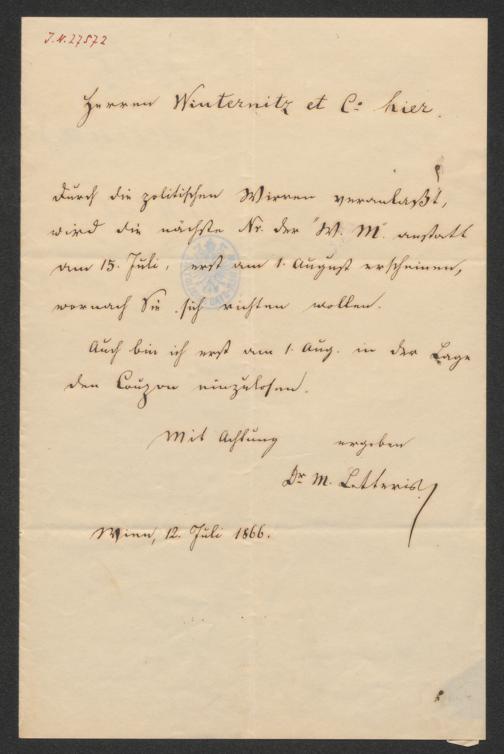 J.N. 27572
Herren Winternitz et Co. hier.
Durch die politischen Wirren veranlaßt,
wird die nächste Nr. der "W. M." anstatt
am 15. Juli, erst am 1. August erscheinen,
wornach Sie sich richten wollen.
Auch bin ich erst am 1. Aug. in der Lage
den Coupon einzulösen.
Mit Achtung ergeben
Dr. M. Letteris
Wien, 12. Juli 1866.